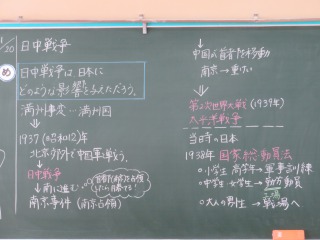 1/20
日中戦争
め
日中戦争は日本に
どのような影響を与えただろう。
満州事変…満州国
↓
1937(昭和12)年
北京郊外で中国軍と
↓
日中戦争
↓ →南に進む
南京事件(南京占領)
首都南京を占領
したら勝てる!
↓
中国は首都を移動
南京→重けい
↓
第2次世界大戦(1939年)
太平洋戦争
当時の日本
1938年 国家総動員法
○小学生 高学年→軍事訓練
○中学生 女学生→勤労動員
工場
○大人の男性→戦場へ